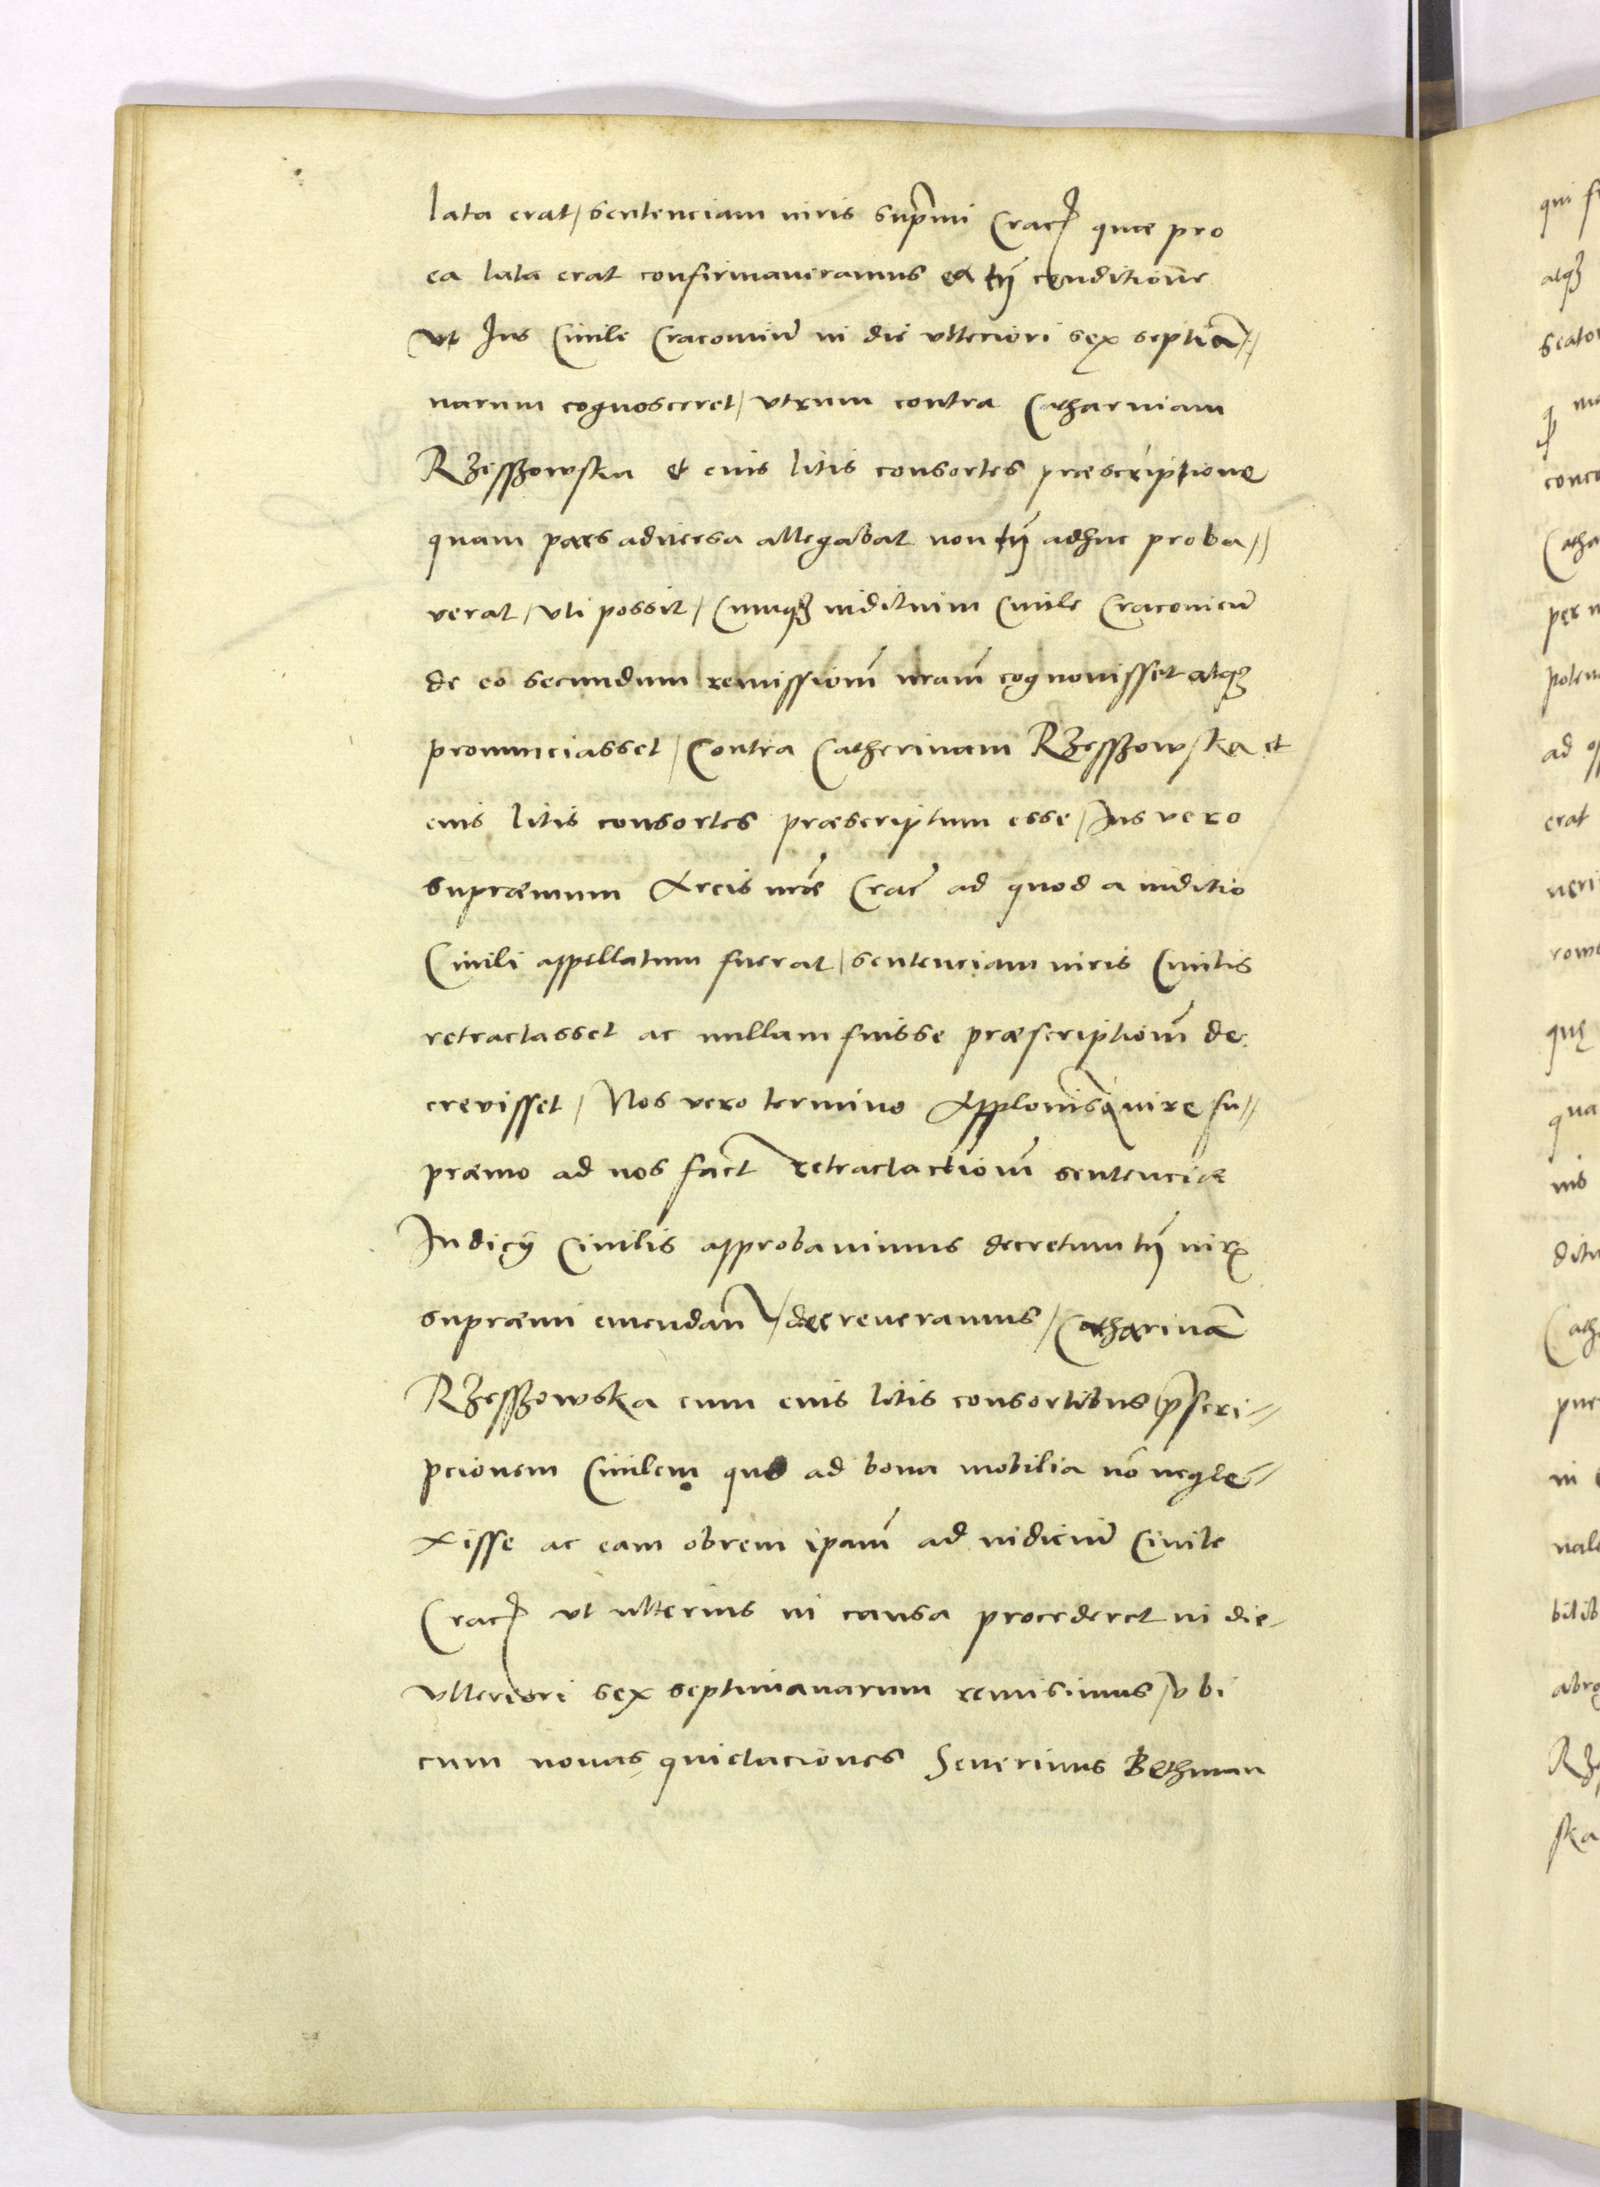 lata erat, sentenciam iuris supremi Crac quae pro
ea lata erat confirmaueramus ea tn conditione
Vt Ius Ciuile Cracouien in die vlteriori sex septima//
narum cognosceret, vtrum contra Catharinam
Rzesszowska et eius litis consortes praescriptione
quam pars aduersa allegabat non tn adhuc proba//
verat, vti possit, Cumq iuditium Ciuile Cracouien
de eo secundum remissionem nram cognouisset atq
pronunciasset, Contra Catherinam Rzesszowska et
eius litis consortes praescriptum esse, Ius vero
supraemum Arcis nrae Crac ad quod a iuditio
Ciuili appellatum fuerat, sentenciam iuris Ciuilis
retractasset ac nullam fuisse praescriptionem de
creuisset, Nos vero termino Applonis a iure su//
praemo ad nos fact retractactionem sentenciae
Iudicij Ciuilis approbauimus decretum tn iur
supraemi emendan, decreueramus, Catharinam
Rzesszowska cum eius litis consortibus prescri//
pcionem Ciuilem quo ad bona mobilia non negle//
xisse ac eam obrem ipam ad iudicium Ciuile
Crac vt ulterius in causa procederet in die
vlteriori sex septimanarum remisimus, vbi
cum nouas quietaciones Seuerinus Bethman
qui
atq